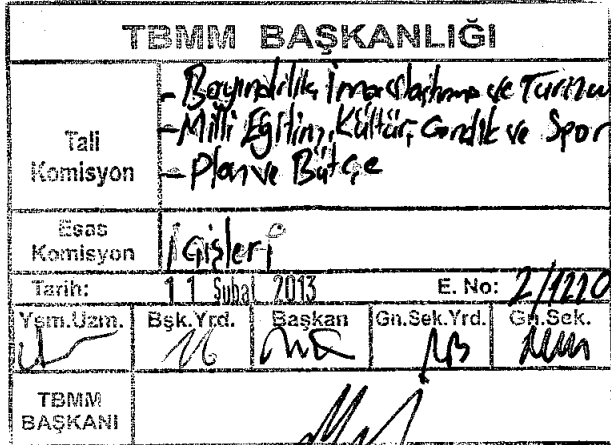 TBMM BAŞKANLIĞI
Tali Komisyon
- Bayındırlık, İmar, Ulaştırma ve Turizm
- Milli Eğitim, Kültür, Gençlik ve Spor
- Plan ve Bütçe
Esas Komisyon
İçişleri
Tarih: 11 Şubat 2013 E. No: 2/1210
Ysm.Uzm. Bşk.Yrd. Başkan Gn.Sek.Yrd. Gn.Sek.
TBMM BAŞKANI